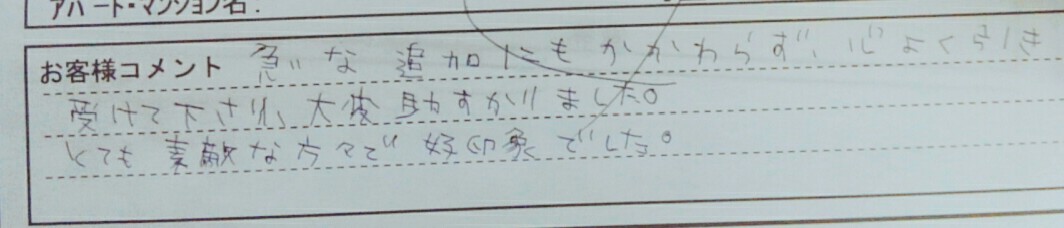 アパート・マンション名:
お客様コメント 急な追加にもかかわらず、心よく引き
受けて下され、大変助すかりました。
とても素敵な方々で好印象でした。